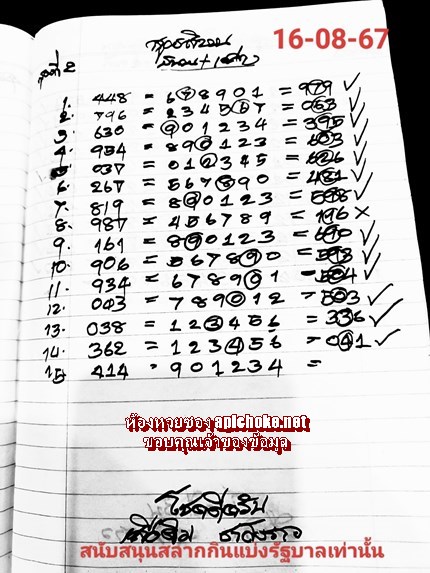 16-08-67
สูตรคำนวน
ชุดที่ 2
1. 448 = 678901 = 979 ✓
2. 796 = 234567 = 053 ✓
3. 630 = 901234 = 395 ✓
4. 954 = 890123 = 603 ✓
5 037 = 012345 = 626 ✓
6. 267 = 567890 = 481 ✓
7. 819 = 890123 = 598 ✓
8. 987 = 456789 = 196 ×
9. 161 = 890123 = 690 ✓
10. 906 = 567890 = 593 ✓
11. 934 = 678901 = 504 ✓
12. 043 = 789012 = 503 ✓
13. 038 = 123456 = 336 ✓
14. 362 = 123456 = 041 ✓
15 414 = 901234 =
ห้องหวยซอง apichoke.net
ขอบคุณเจ้าของข้อมูล
โชคดีครับ
สนับสนุนสลากกินแบ่งรัฐบาลเท่านั้น